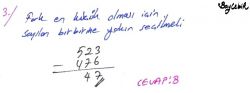 3-) Fark en küçük olması için
sayılar birbirine yakın seçilmeli
523
- 476
47
CEVAP: B